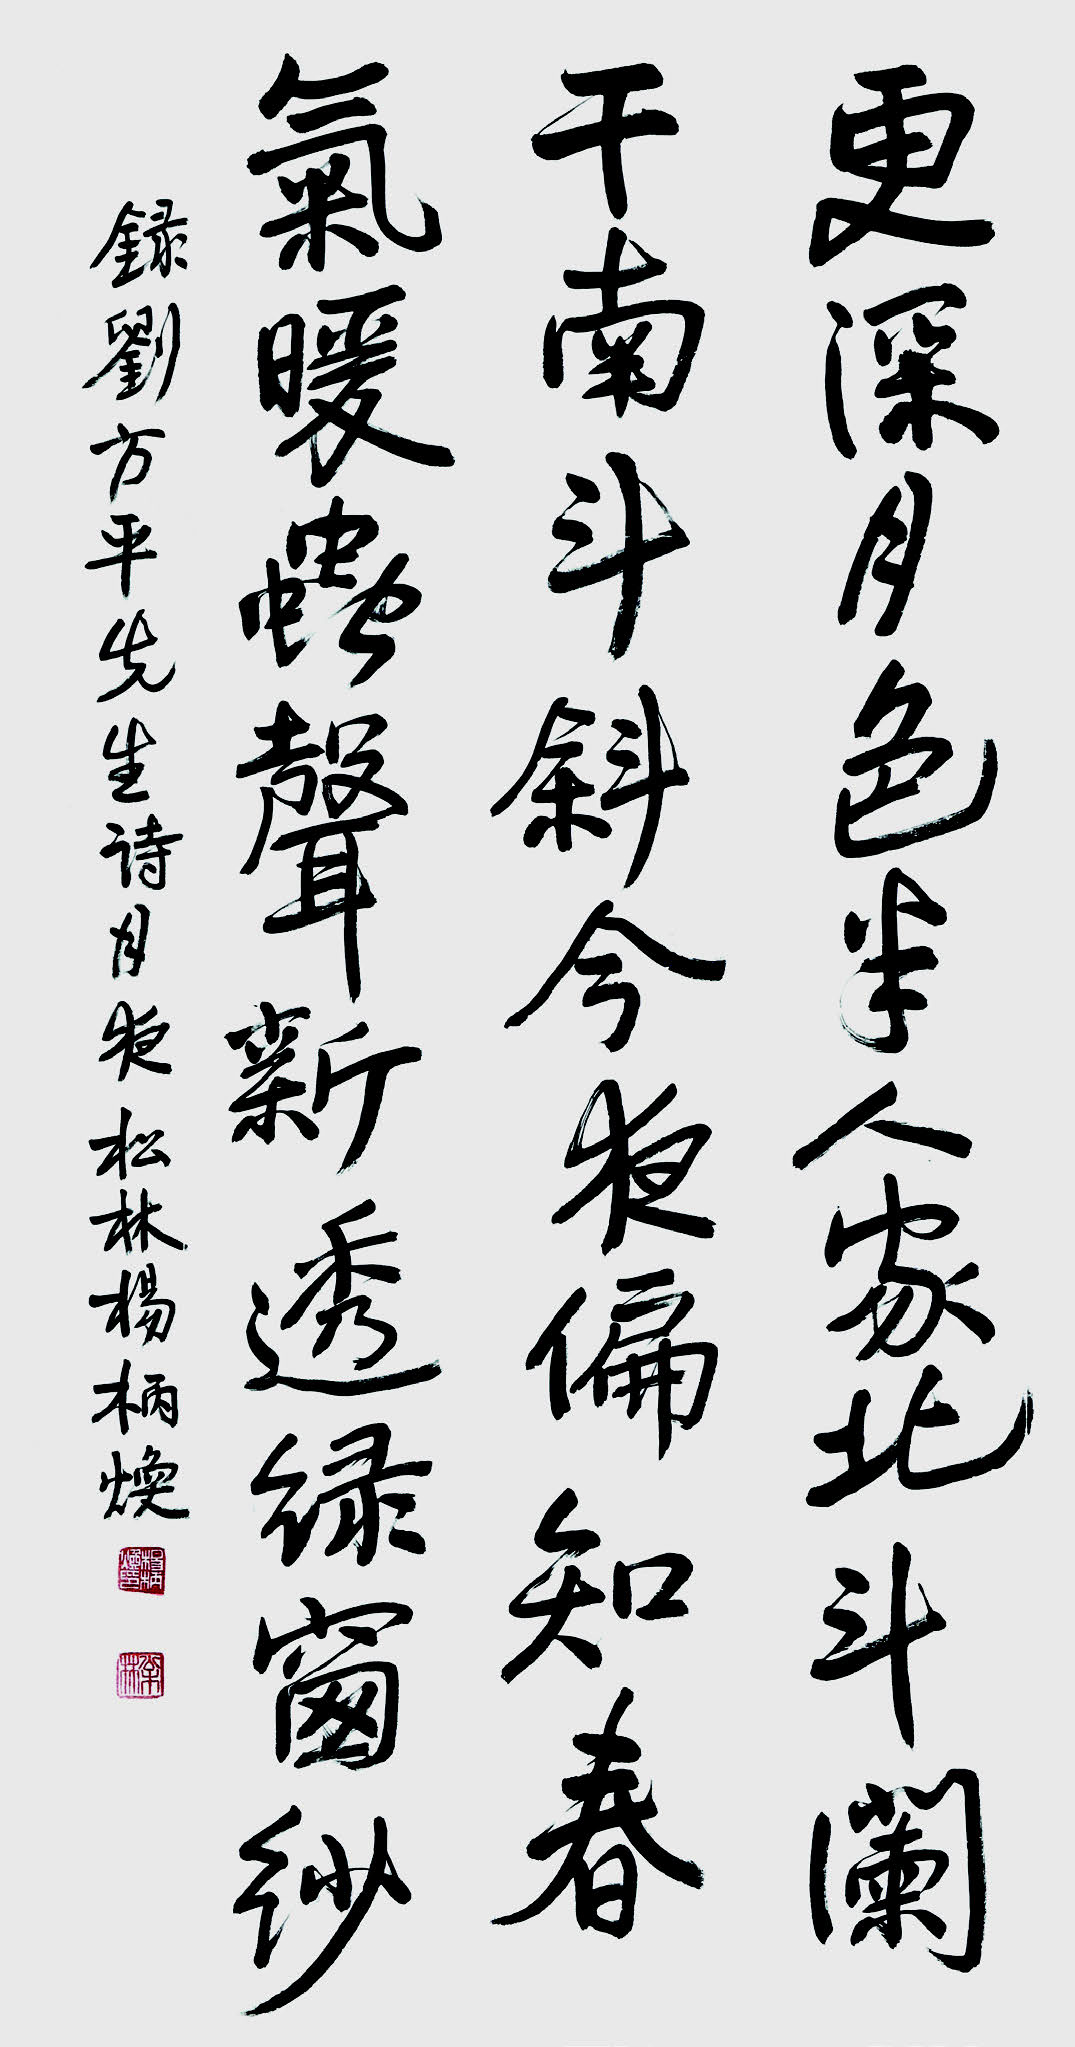 更深月色半人家北斗闌
干南斗斜今夜偏知春
氣暖蟲聲新透緑窗紗
録劉方平先生诗月夜松林楊柄煥